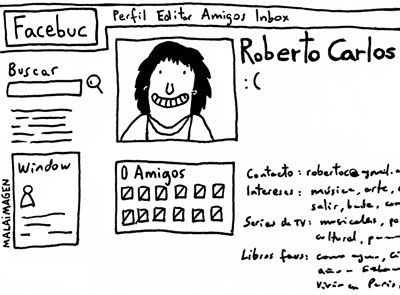 Facebuc
Perfil Editar Amigos Inbox
Roberto Carlos
:(
Buscar
Window
0 Amigos
MALAiMAGEN
Contacto: robertoc@gmail.
Intereses: música, arte,
salir, baile,
Series de TV: musicales,
cultural,
Libros favs: como agua,
Vivir en París,